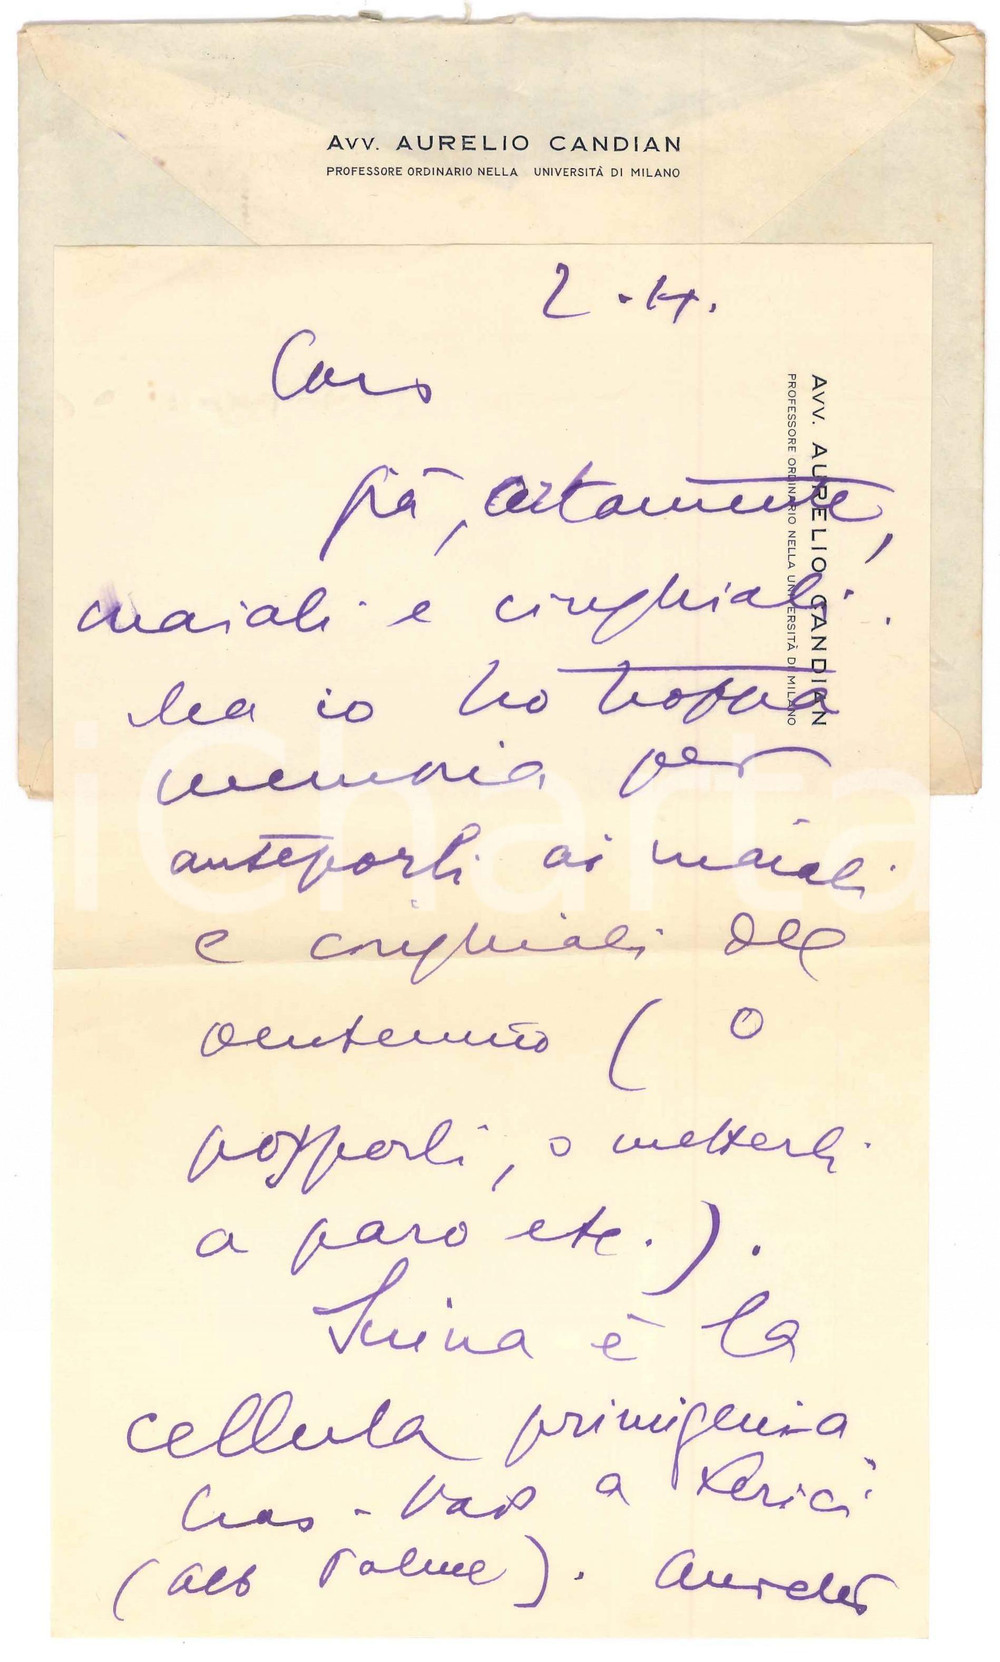 AVV. AURELIO CANDIAN
PROFESSORE ORDINARIO NELLA UNIVERSITÀ DI MILANO
2.4.
Caro
già, certamente,
maiali e cinghiali.
Ma io ho troppa
memoria per
anteporli ai maiali
e cinghiali del
ventennio ( o
posporli, o metterli
a paro etc.).
Suina è la
cellula primigenia
Ciao - Vado a Lerici
(alb Palme). Aurelio
AVV. AURELIO CANDIAN
PROFESSORE ORDINARIO NELLA UNIVERSITÀ DI MILANO
iCharta